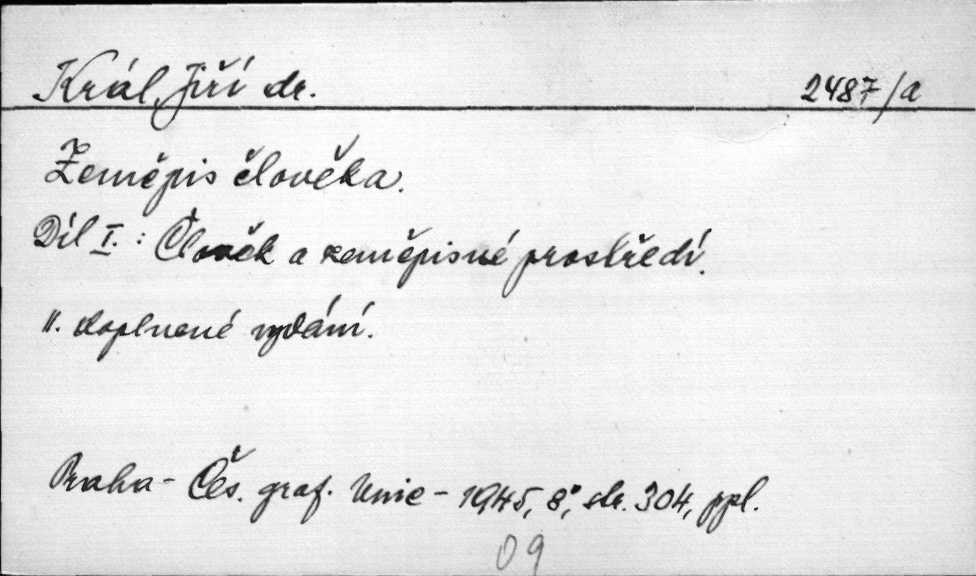 Král Jiří dr. 2487/a
Zeměpis člověka.
Díl I.: Člověk a zeměpisné prostředí.
II. doplnené vydání.
Praha - Čes. graf. Unie - 1945, 8°, str. 304, ppl.
09